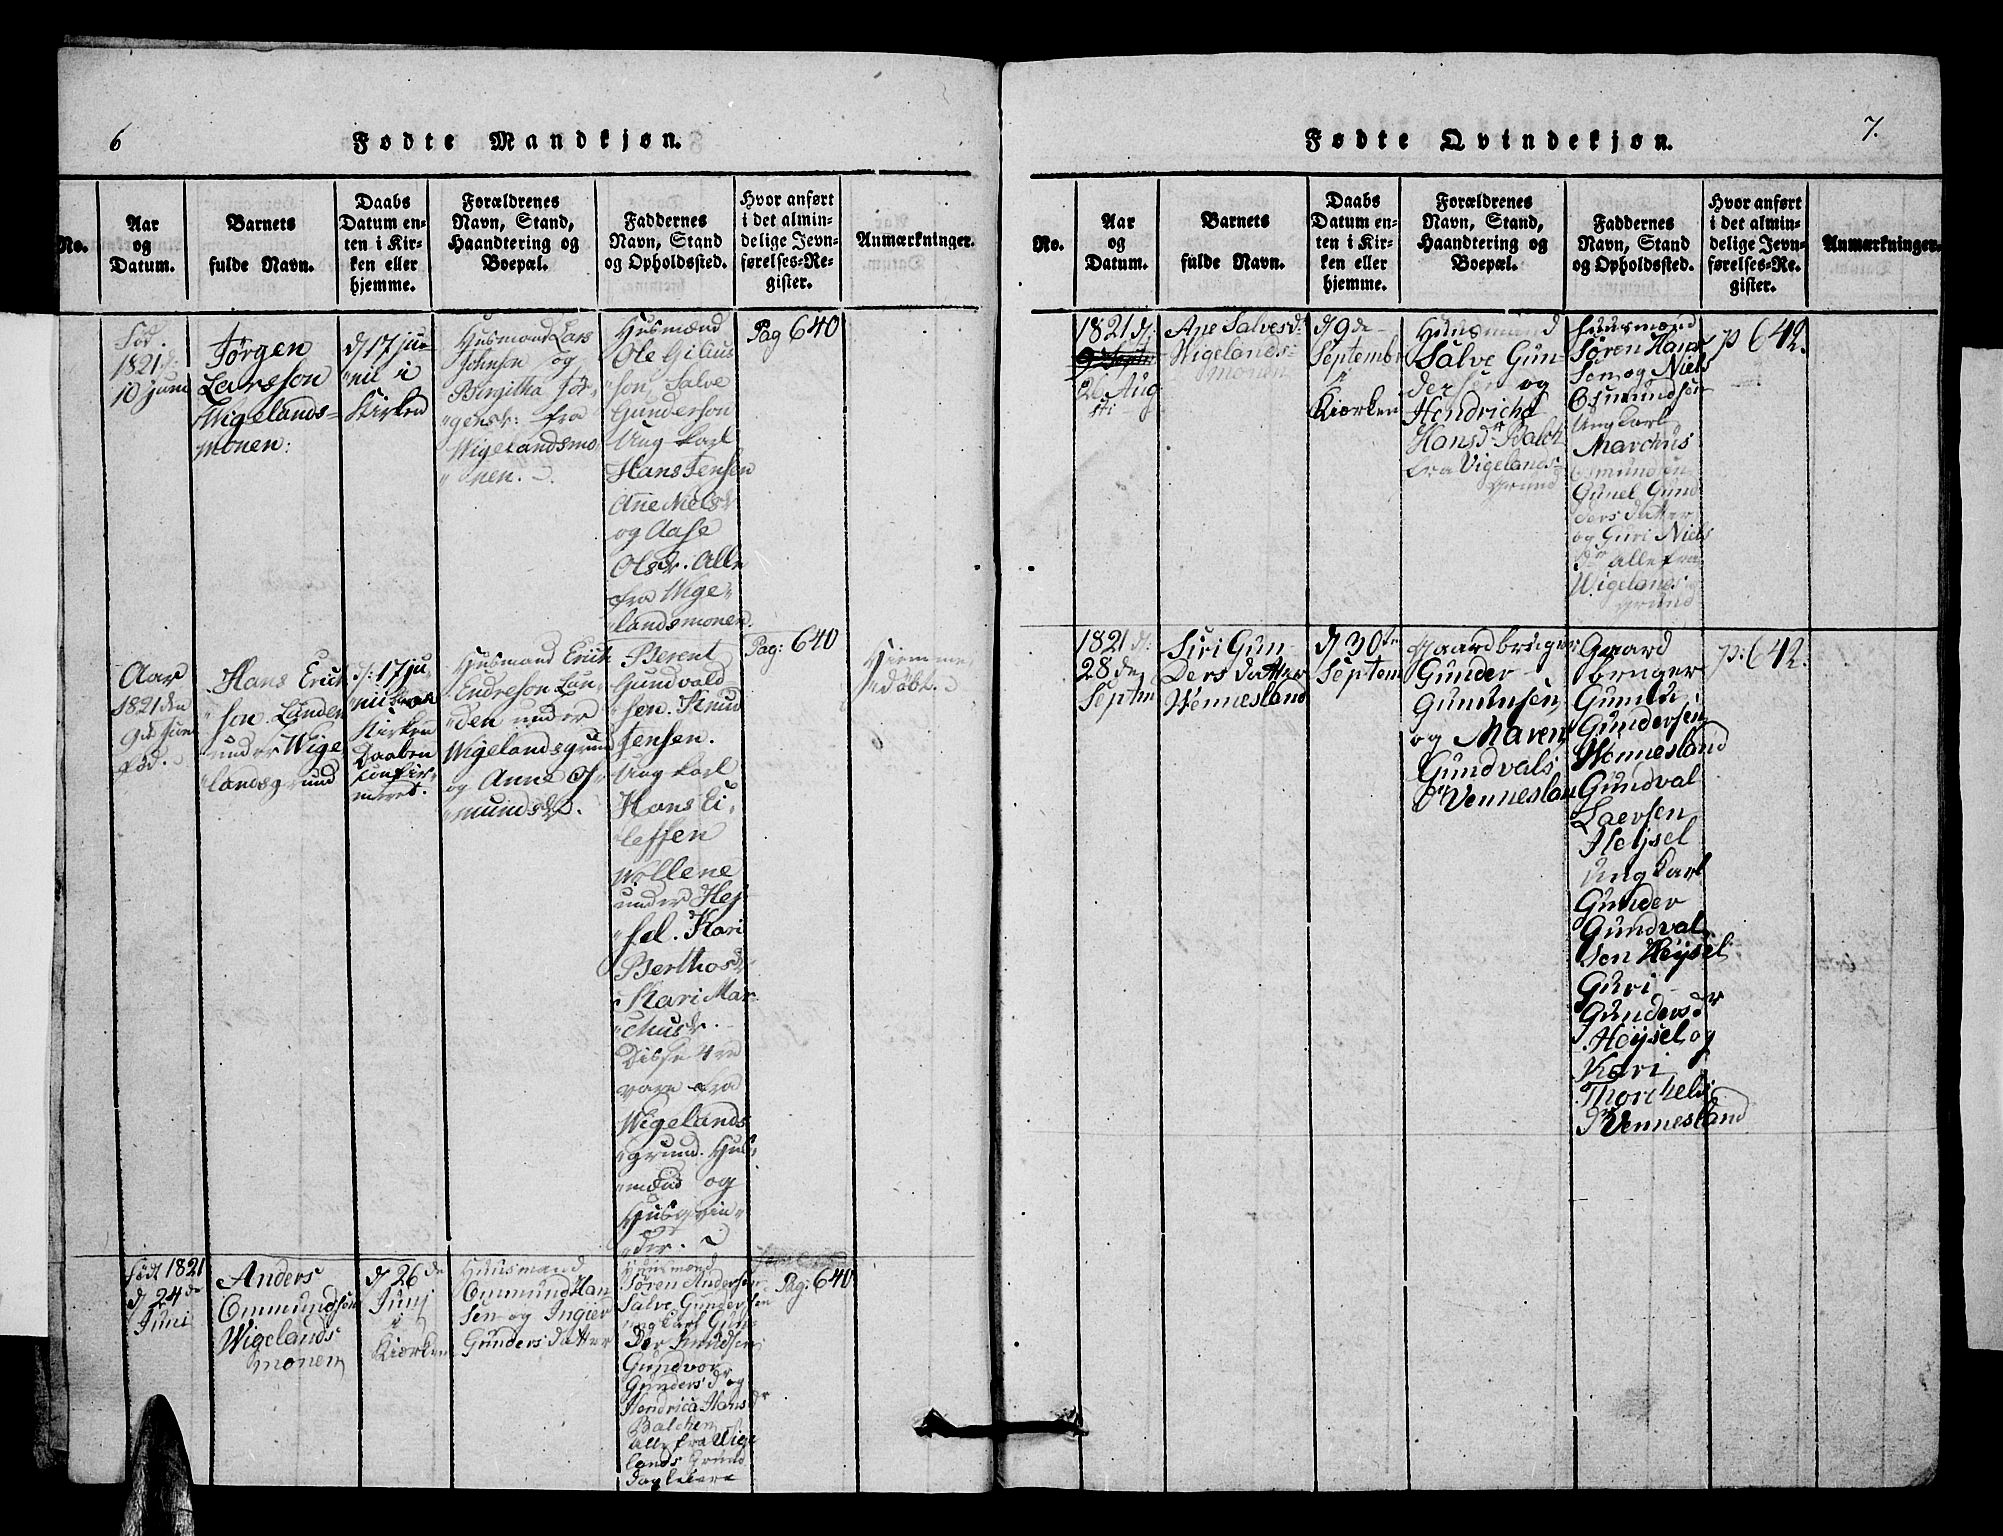 6
Fødte Mandkjøn.
No.
Aar
og
Datum.
Barnets
fulde Navn.
Daabs
Datum en-
ten i Kir-
ken eller
hjemme.
Forældrenes
Navn, Stand,
Haandtering og
Boepæl.
Faddernes
Navn, Stand
og Opholdssted.
Hvor anført
i det almin-
delige Jevn-
førelses-Re-
gister.
Anmærkninger.
Fød.
1821 d.
10 juni
Jørgen
Larsson
Wigelands-
monen:
d 17 ju-
nii i
Kirken
Husmand Lars
Johnsen og
Birgitha Jør-
gensdr: fra
Wigelandsmo-
nen.
Husmænd
Ole Gilius
son, Salve
Gunderson
Ung karl
Hans Jensen
Ane Nielsdr
og Aase
Olsdr. Alle
fra Wige-
landsmonen.
Pag 640
Aar
1821 den
9de Juni
fød.
Hans Erich
son. Lunden
under Wige
landsgrund
d: 17 ju-
nii
Kirken
Daaben
confir-
meret.
Husmand Erich
Endreson Lun-
den under
Wigelandsgrund
og Anne Os-
mundsdr.
Berent
Gundvald
sen. Knud
Jensen.
Ung karl
Hans Ei-
leffen
Wollene
under Hej-
sel. Kari
Berthosdr
Kari Mar-
chusdr.
Disse 4re
vare fra
Wigelands
grund. Hus-
mænd og
Husqvin-
der.
Pag: 640
Hiemme
døbt.
Født 1821
d 24de
Juni
Anders
Ommundsøn
Wigelands
monen
d 26de
Junj
i
Kiørken
Huusmand
Ommund Han
sen og Ingier
Gunders datter
Huusmænd
Søren Andersen
Salve Gundersen
ung karl Gun-
der Knudsen
Gundvor
Gundersdr og
Hendrica Hansdr
Balchen
alle fra Wige
lands Grund
dagleiere
Pag: 640
7.
Fødte Qvindekjøn.
No.
Aar
og
Datum.
Barnets
fulde Navn.
Daabs
Datum en-
ten i Kir-
ken eller
hjemme.
Forældrenes
Navn, Stand,
Haandtering og
Boepæl.
Faddernes
Navn, Stand
og Opholdssted.
Hvor anført
i det almin-
delige Jevn-
førelses-Re-
gister.
Anmærkninger.
1821 d:
26 Aug
sti
Ane Salvesdr
Wigelands-
monen
d 9de
Septembr
i
Kiørken
Huusmand
Salve Gun-
dersen og
Hendricha
Hansdr Balch
fra Vigelands-
grund
Huusmænd
Søren Han
sen og Niels
Osmundsøn
Ung karl
Marchus
Osmundsen
Gunel Gun
dersdatter
og Guri Niels
dr alle fra
Wigelands
grund
p 642.
1821 d:
28de
Septm
Siri Gun-
dersdatter
Wennesland
d 30te
Septem
Gaardbruger
Gunder
Gundnsen
og Maren
Gundvals
dr Venneslan
Gaard
bruger
Gundu
Gundersen
Wennesland
Gundval
Laersen
Heysel
Ung karl
Gunder
Gundval
sen Heysel
Guri
Gundersdr
Heysel og
Kari
Thorchels
dr Vennesland
p: 642.